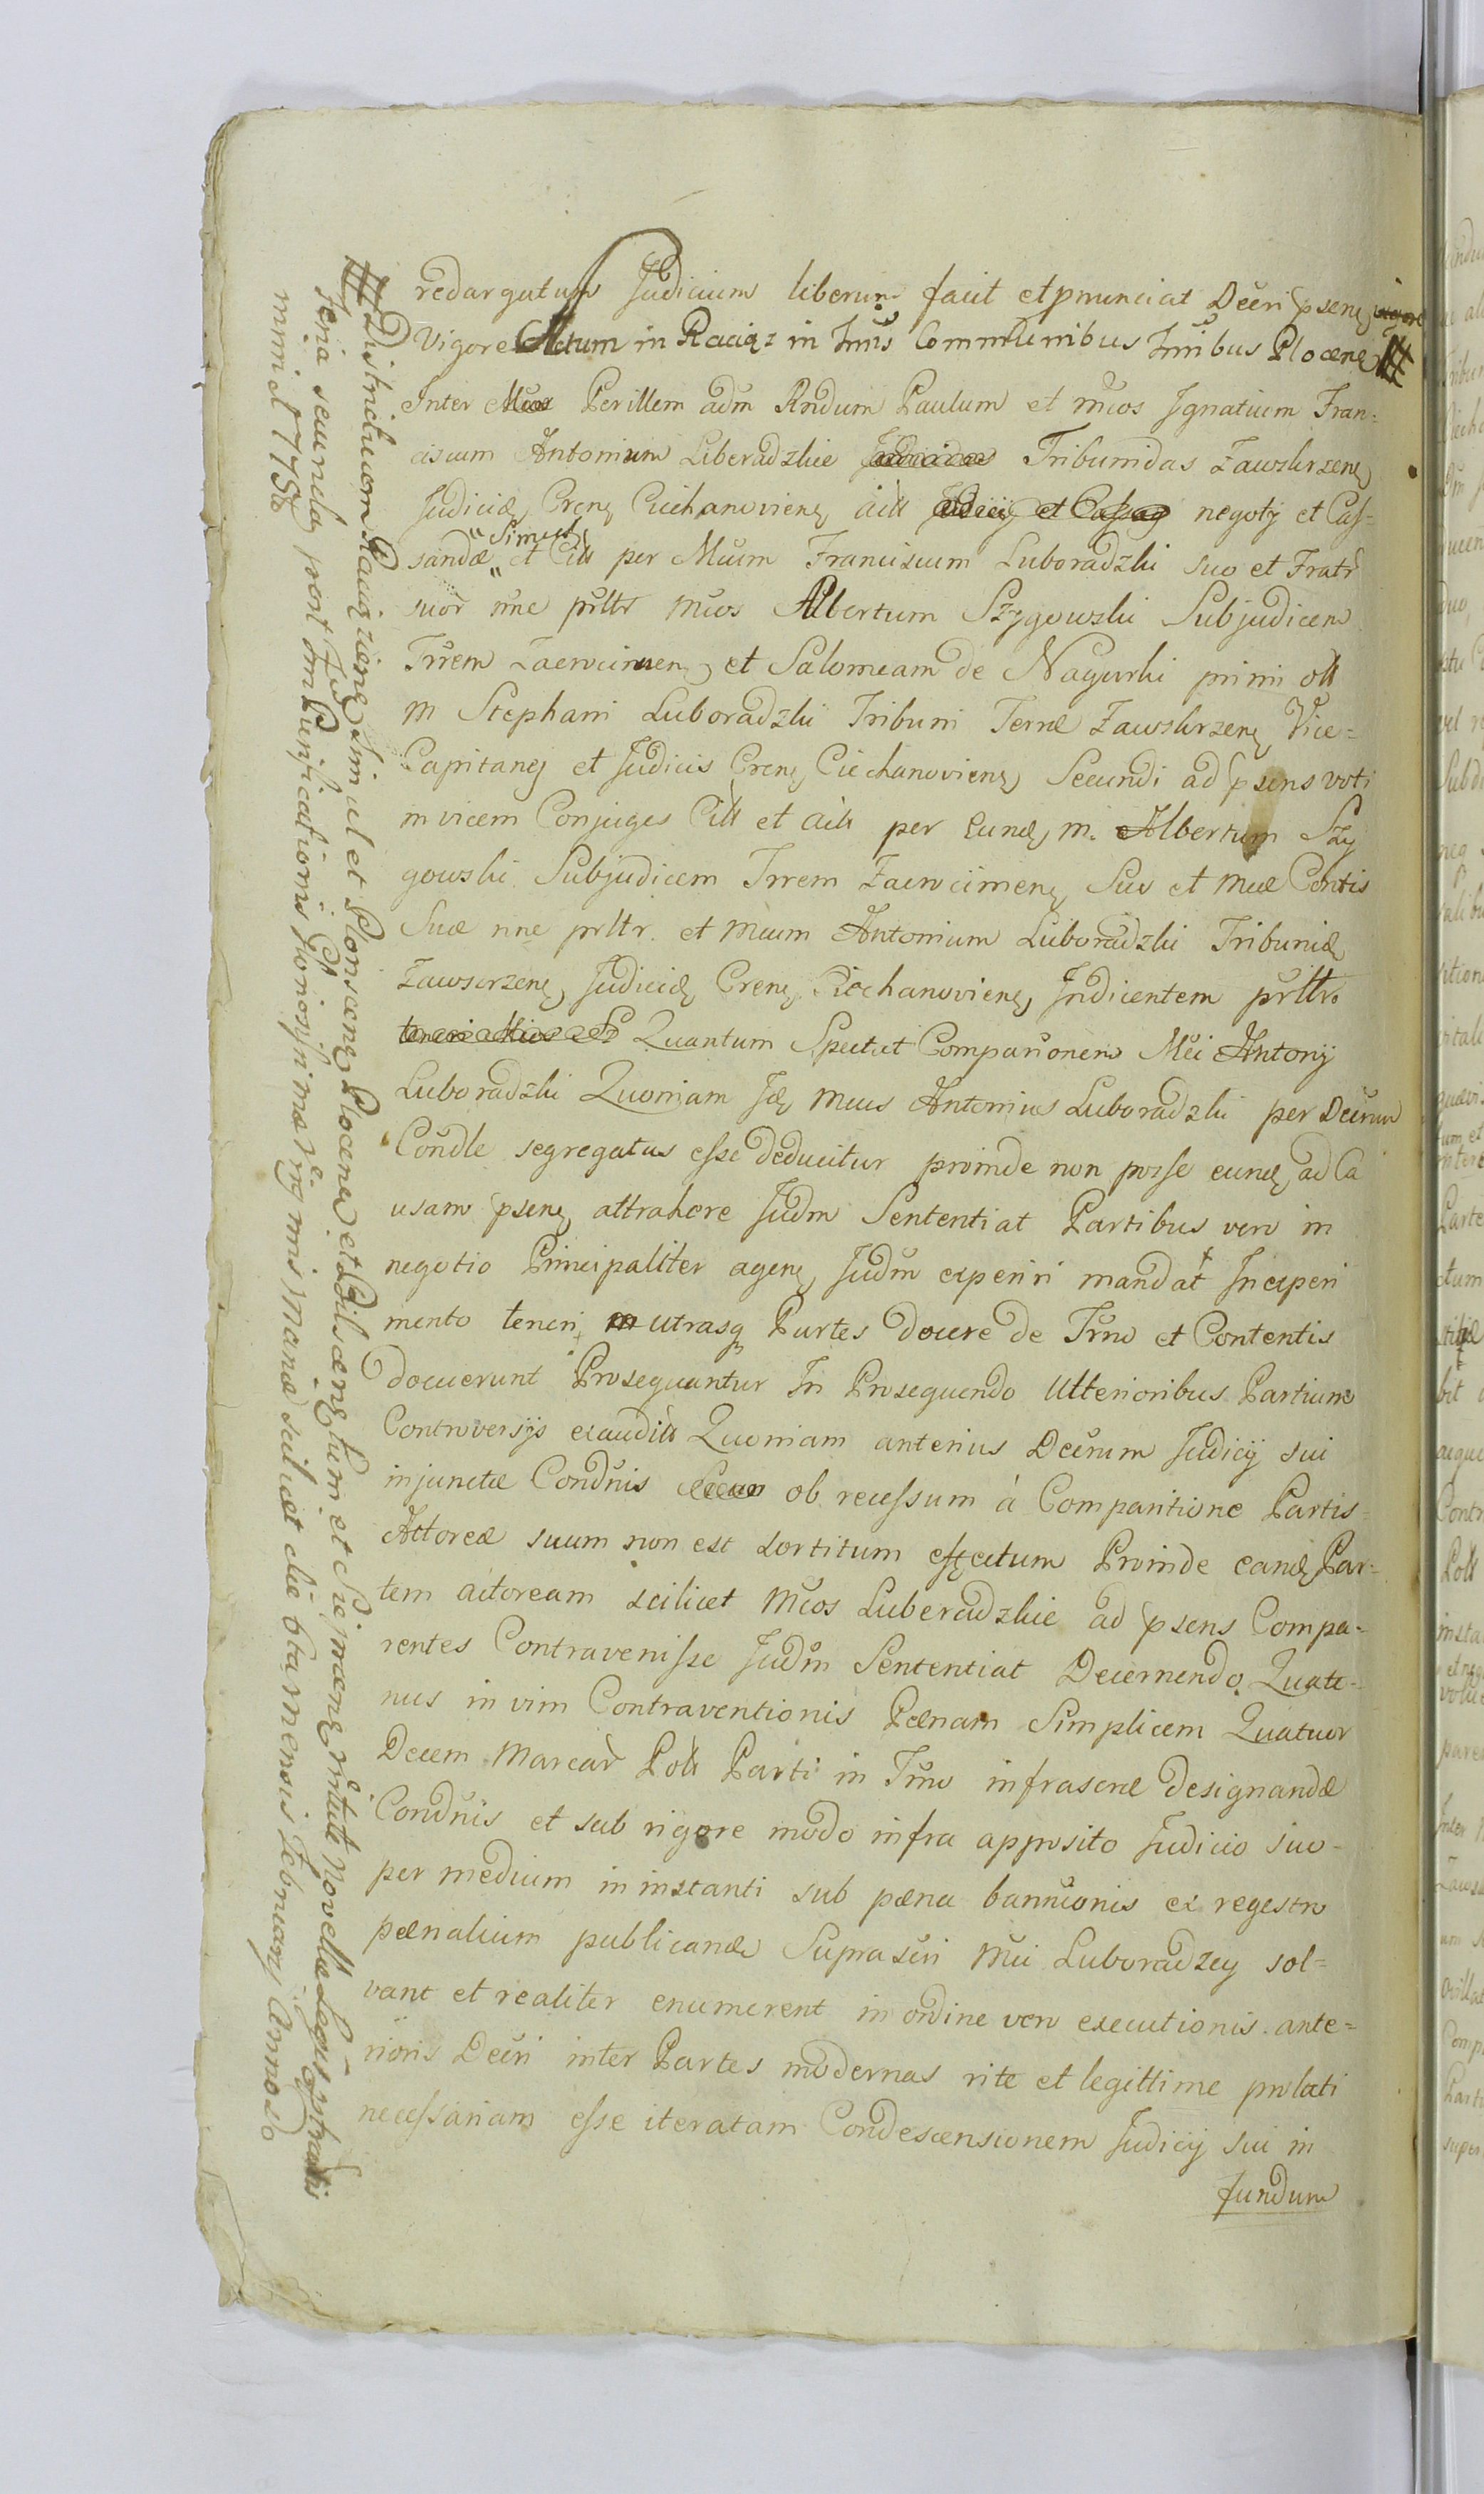 redargutum Judicium liberum facit et pnunciat Decri psenę vigore
Vigore Actum in Raciąz in Tmis Communibus Tmibus Plocenę
Inter Perillem adm Rndum Paulum et Mcos Ignatium Fran=
ciscum Antonium Liberadzkie Tribunidas Zawskrzenę
Judicidę Crenę Ciechanovienę negotij et Cas=
sandæ "Simul" et Citt per Mcum Franciscum Luboradzki suo et Fratr
suor nne prltr Mcos Albertum Szygowski Subjudicem
Trrem Zacrocimenę et Salomeam de Nagurki primi ott
M Stephani Luboradzki Tribuni Ternæ Zawskrzenę Vice=
Capitanej et Judicis Crenę Ciechanovienę Secundi ad psens voti
invicem Conjuges Citt et per eundę M. Albertum Szy
gowski Subjudicem Trrem Zacrocimenę Suo et Mcæ Contis
Suæ nne prltr. et Mcum Antonium Luboradzki Tribunidę
Zawscrzenę Judicidę Crenę Ciechanovienę Indicentem prltr.
Quantum Spectat Comparionem Mci Antonij
Luboradzki Quoniam Idę Mcus Antonius Luboradzki per Decrum
Condle segregatus esse deducitur proinde non posse eundę ad Ca
usam psenę attrahere Judm Sententiat Partibus vero in
negotio Principaliter agenę Judm experiri mandat In experi
mento teneri utrasq Partes docere de Trno et Contentis
docuerunt Prosequantur In Prosequendo Ulterioribus Partium
Controversijs exauditt Quoniam anterius Decrum Judicij sui
injunctæ Condnis ob recessum à Comparitione Partis
Actoreæ suum non est sortitum effectum Proinde eandę Par=
tem actoream scilicet Mcos Luberadzkie ad psens Compa=
rentes Contravenisse Judm Sententiat Decernendo Quate=
nus in vim Contraventionis Pænam Simplicem Quatuor
Decem Marcar Pott Parti in Tmo infrascrę designandæ
Condnis et sub rigore modo infra apposito Judicio suo
per medium in instanti sub pæna bannionis ex regestro
pænalium publicandę Suprascri Mci Luboradzcy sol=
vant et realiter enumerent in ordine vero executionis ante=
rioris Decri inter Partes modernas rite et legittime prolati
necessariam esse iteratam Condescensionem Judicij sui in
fundum
Districtuum Raciązænę Simul et Plonscenę Plocenę et Bilscænę tum et Srejmænę Novellæ Legis
feria secunda post Purificationis
die 6ta mensis Februarij Anno